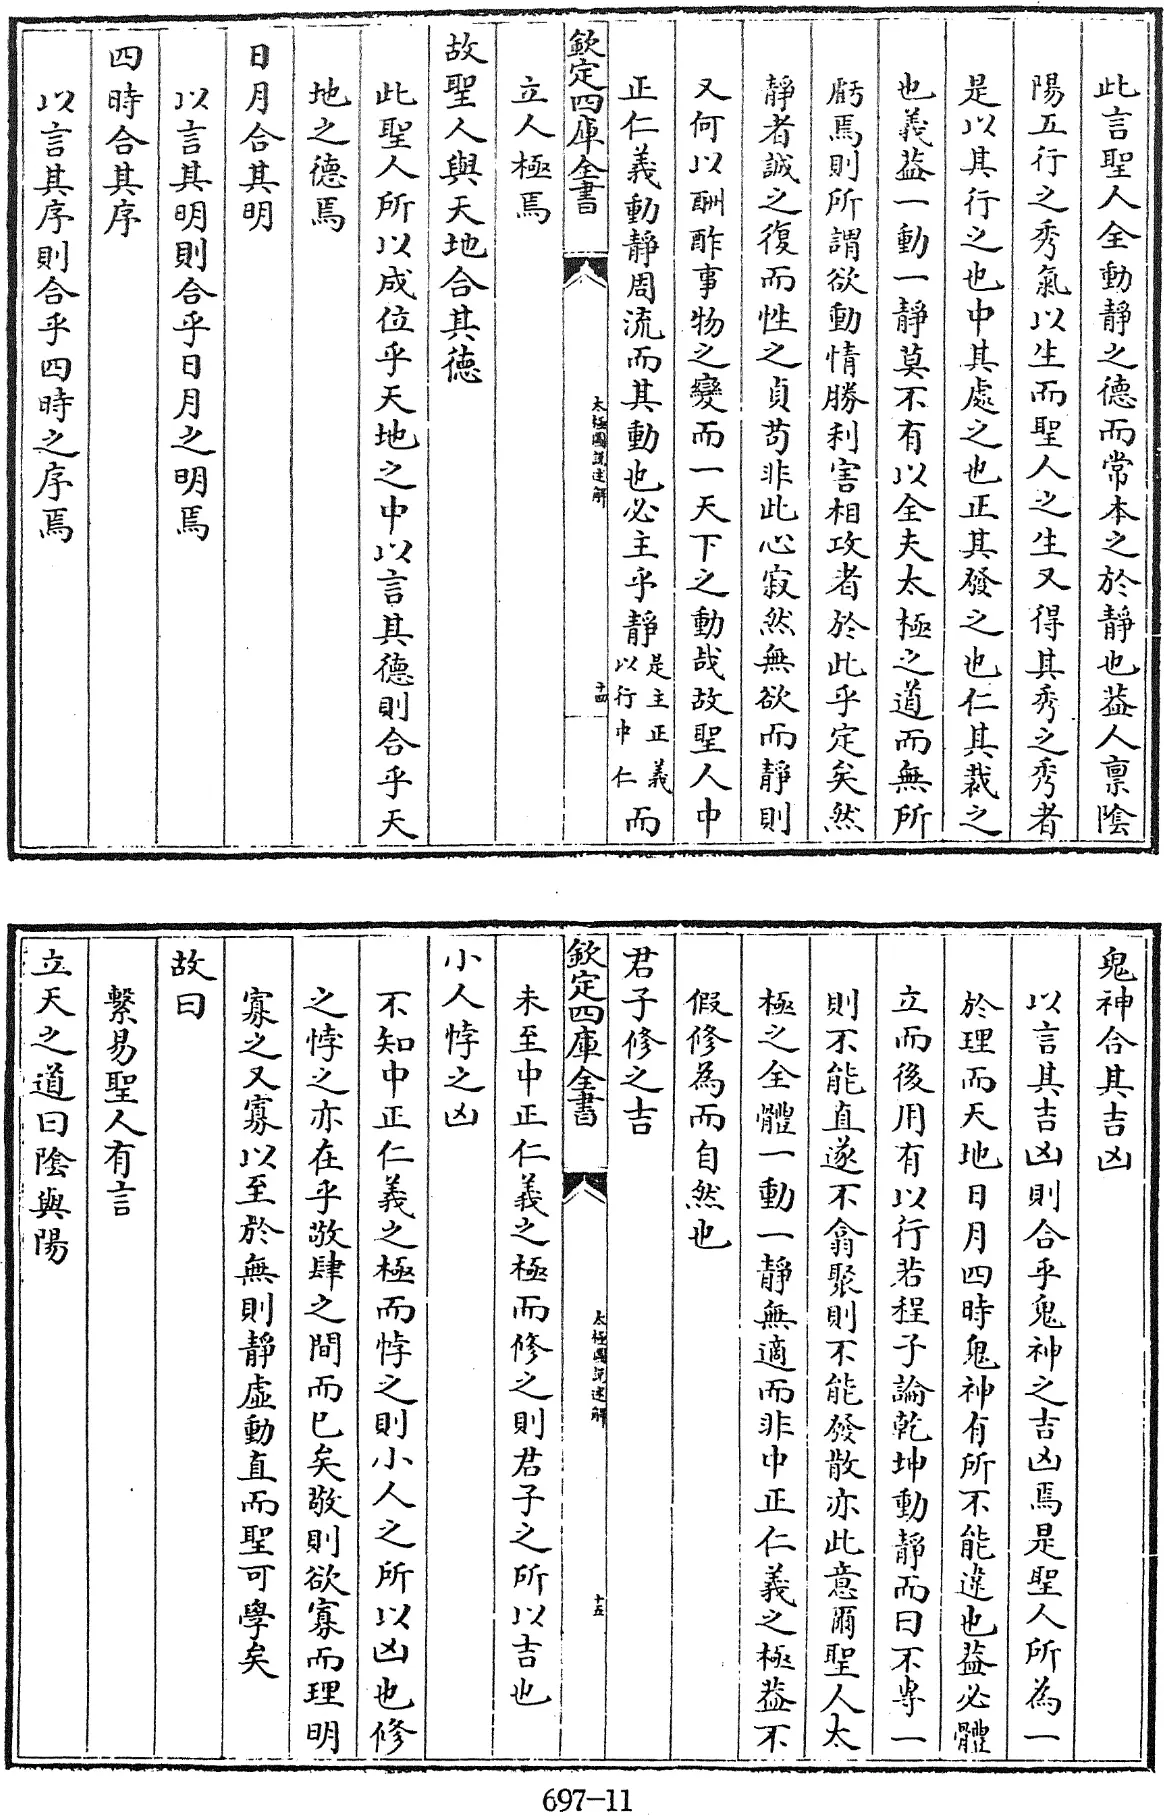 此言聖人全動靜之德而常本之於靜也葢人禀陰
陽五行之秀氣以生而聖人之生又得其秀之秀者
是以其行之也中其處之也正其發之也仁其裁之
也義葢一動一靜莫不有以全夫太極之道而無所
虧焉則所謂欲動情勝利害相攻者於此乎定矣然
靜者誠之復而性之貞苟非此心寂然無欲而靜則
又何以酬酢事物之變而一天下之動哉故聖人中
正仁義動靜周流而其動也必主乎靜是主正義以行中仁而
欽定四庫全書
太極圖說述解
十四
立人極焉
故聖人與天地合其德
此聖人所以成位乎天地之中以言其德則合乎天
地之德焉
日月合其明
以言其明則合乎日月之明焉
四時合其序
以言其序則合乎四時之序焉
鬼神合其吉凶
以言其吉凶則合乎鬼神之吉凶焉是聖人所為一
於理而天地日月四時鬼神有所不能違也葢必體
立而後用有以行若程子論乾坤動靜而曰不専一
則不能直遂不翕聚則不能發散亦此意爾聖人太
極之全體一動一靜無適而非中正仁義之極葢不
假修為而自然也
君子修之吉
欽定四庫全書
太極圖說述解
十五
未至中正仁義之極而修之則君子之所以吉也
小人悖之凶
不知中正仁義之極而悖之則小人之所以凶也修
之悖之亦在乎敬肆之間而已矣敬則欲寡而理明
寡之又寡以至於無則靜虛動直而聖可學矣
故曰
繫易聖人有言
立天之道曰陰與陽
697-11